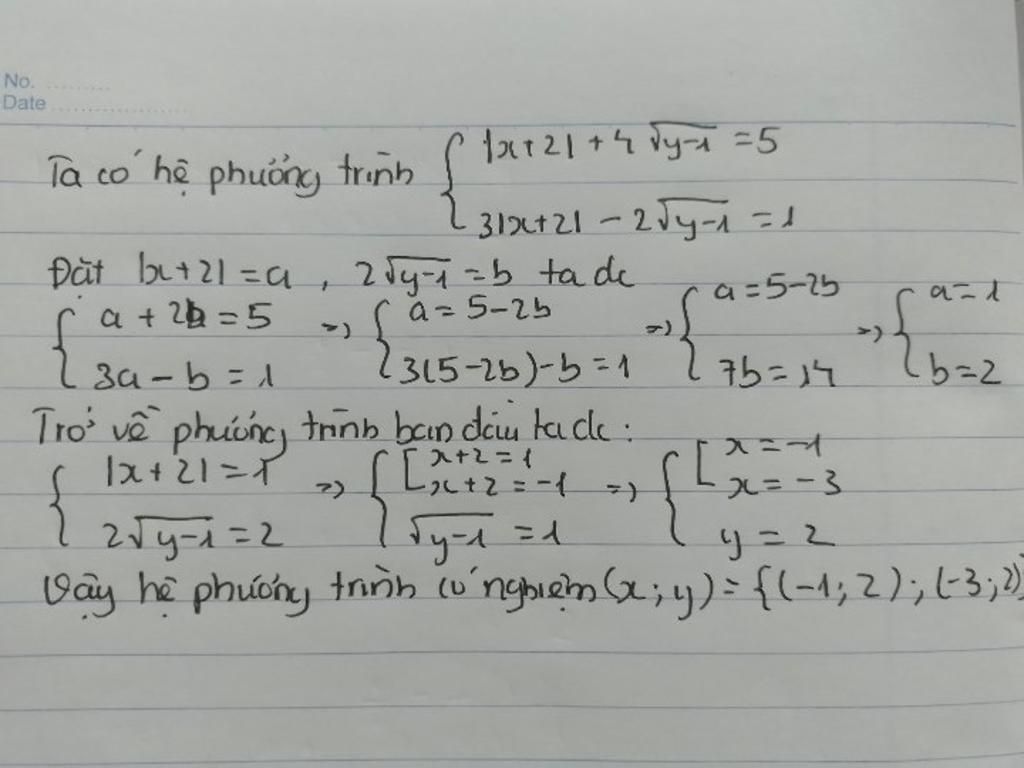 No. ..........
Date ....................
Ta có hệ phương trình { |x+2| + 4√(y-1) = 5
3|x+2| - 2√(y-1) = 1
Đặt |x+2| = a , 2√(y-1) = b ta dc
{ a + 2b = 5 => { a = 5-2b => { a = 5-2b => { a = 1
3a - b = 1 3(5-2b)-b = 1 7b = 14 b = 2
Trở về phương trình ban đầu ta dc :
{ |x+2| = 1 => { [ x+2 = 1 => { [ x = -1
x+2 = -1 x = -3
2√(y-1) = 2 √(y-1) = 1 y = 2
Vậy hệ phương trình có nghiệm (x; y) = {(-1; 2); (-3; 2)}